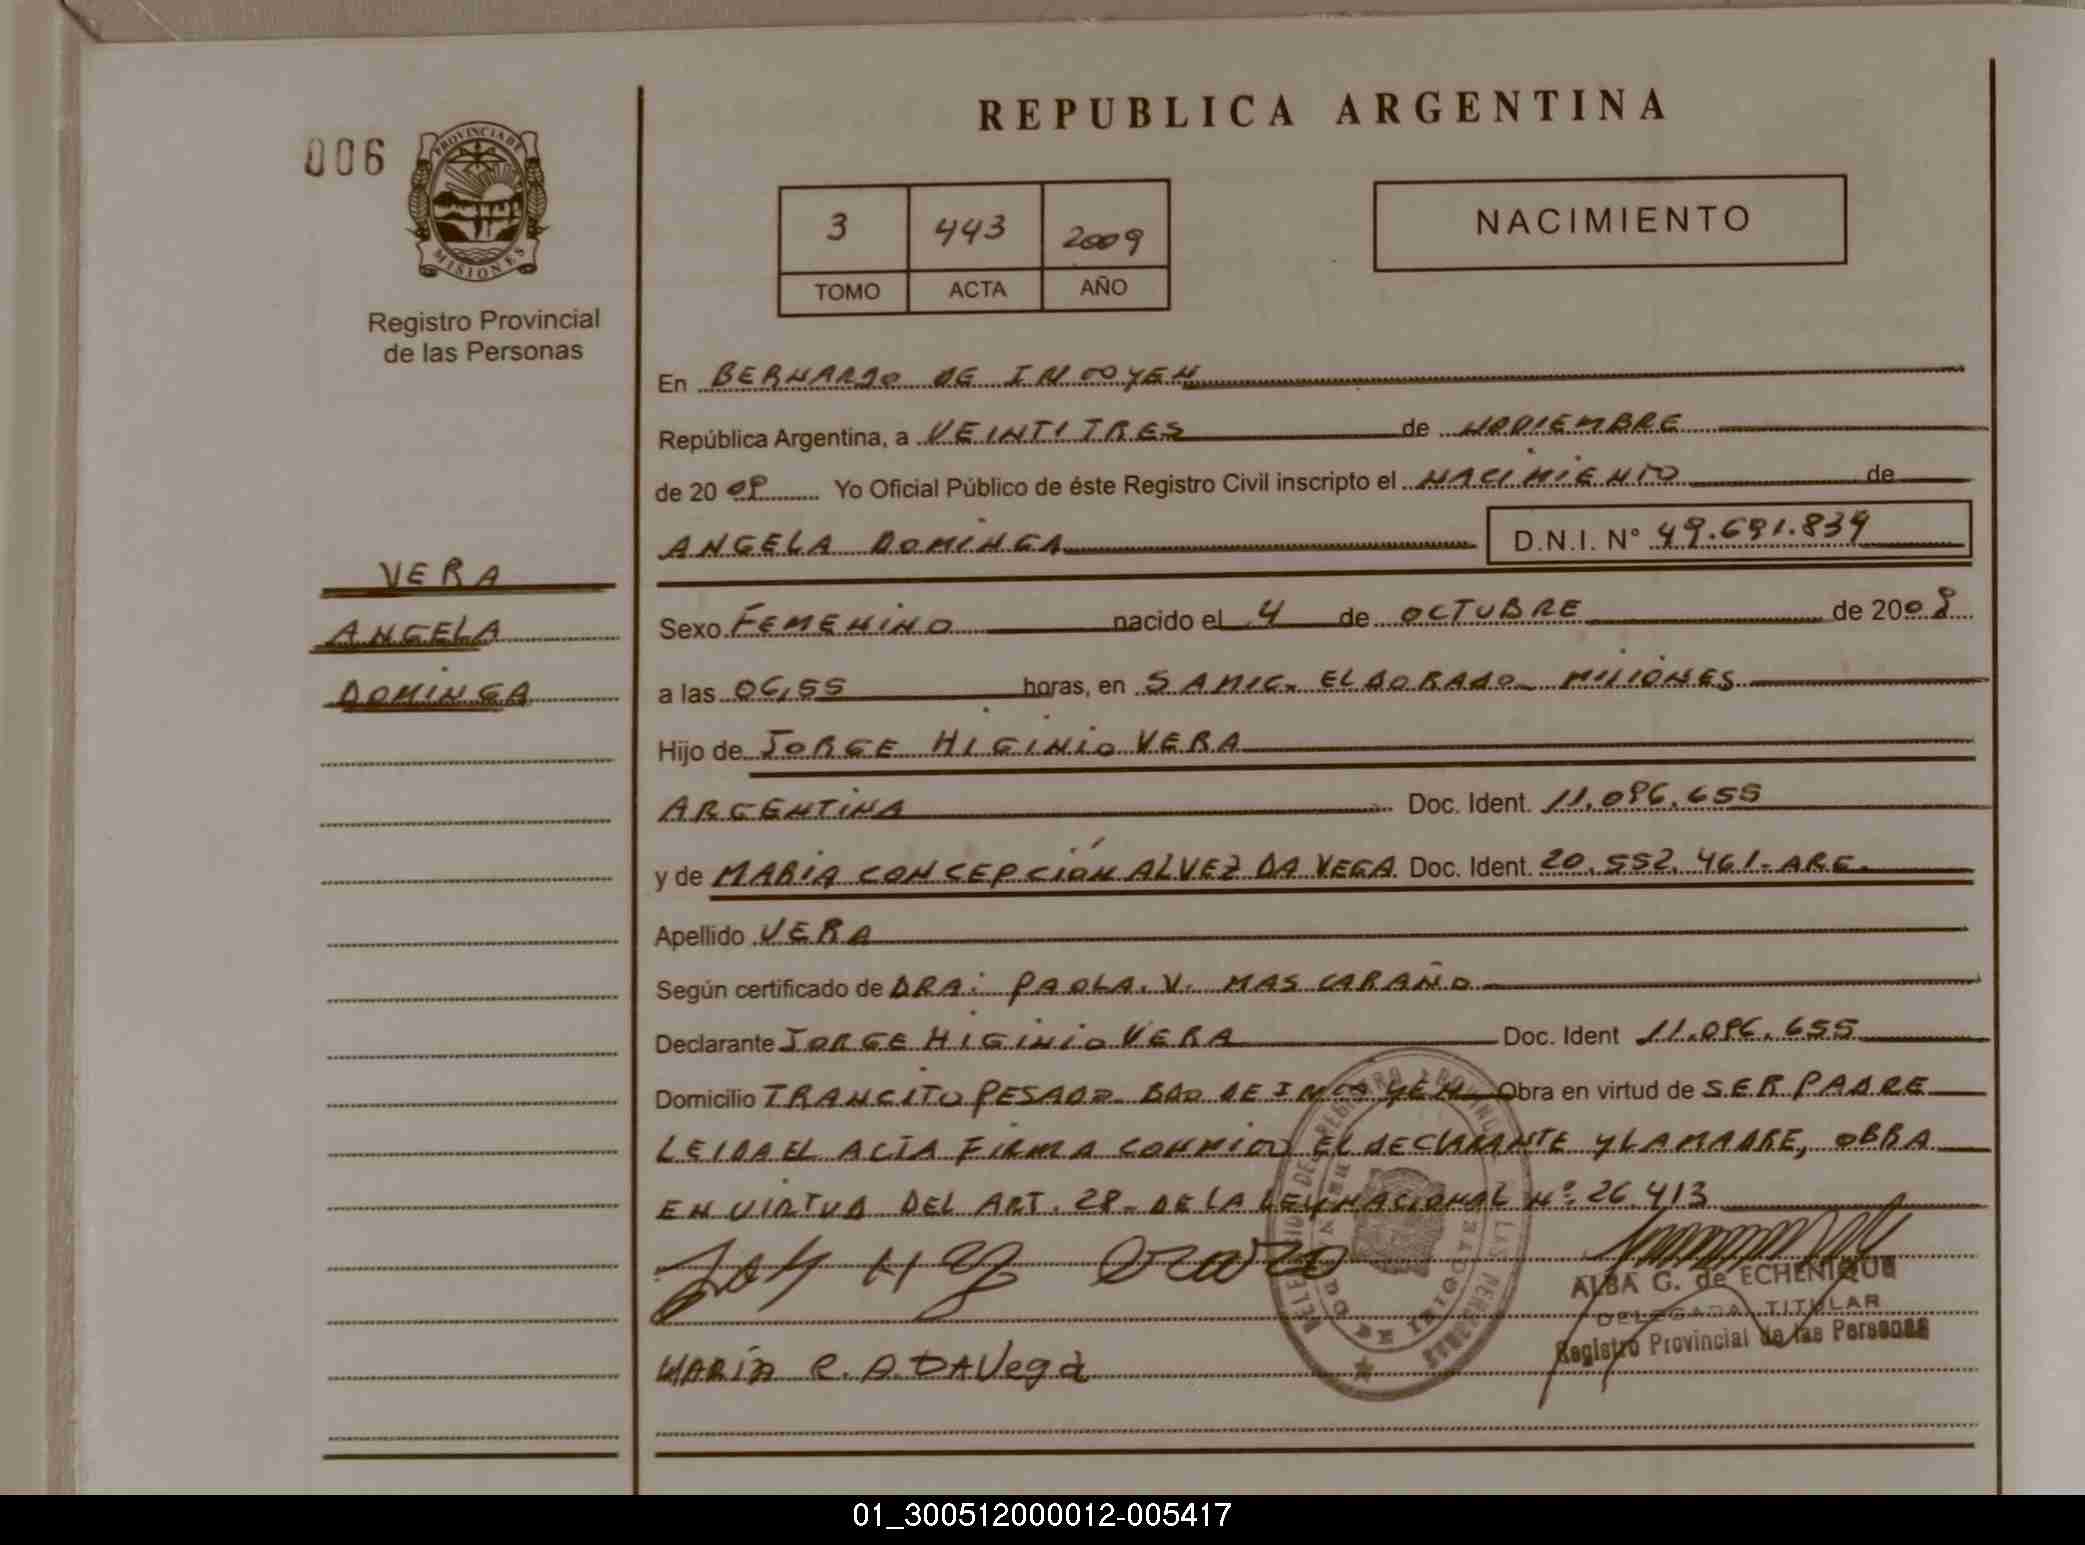 REPUBLICA ARGENTINA
006
PROVINCIA DE
MISIONES
Registro Provincial
de las Personas
3 443 2009
TOMO ACTA AÑO
NACIMIENTO
VERA
ANGELA
DOMINGA
En BERNARDO DE IRIGOYEN
República Argentina, a VEINTITRES de NOVIEMBRE
de 2009 Yo Oficial Público de éste Registro Civil inscripto el NACIMIENTO de
ANGELA DOMINGA D.N.I. N° 49.691.839
Sexo FEMENINO nacido el 4 de OCTUBRE de 2009
a las 06,55 horas, en SAMIC. ELDORADO MISIONES
Hijo de JORGE HIGINIO VERA
ARGENTINA Doc. Ident. 11.096.655
y de MARIA CONCEPCIÓN ALVEZ DA VEGA Doc. Ident. 20.552.461- ARG.
Apellido VERA
Según certificado de DRA: PAOLA. V. MASCARAÑO
Declarante JORGE HIGINIO VERA Doc. Ident 11.096.655
Domicilio TRANCITO PESADO BDO DE IRIGOYEN Obra en virtud de SER PADRE
LEIDA EL ACTA FIRMA CONMIGO EL DECLARANTE Y LA MADRE, OBRA
EN VIRTUD DEL ART. 28- DE LA LEY NACIONAL Nº 26.413
ALBA G. de ECHENIQUE
DELEGADA TITULAR
Registro Provincial de las Personas
MARIA C. A. DAVega
01_300512000012-005417